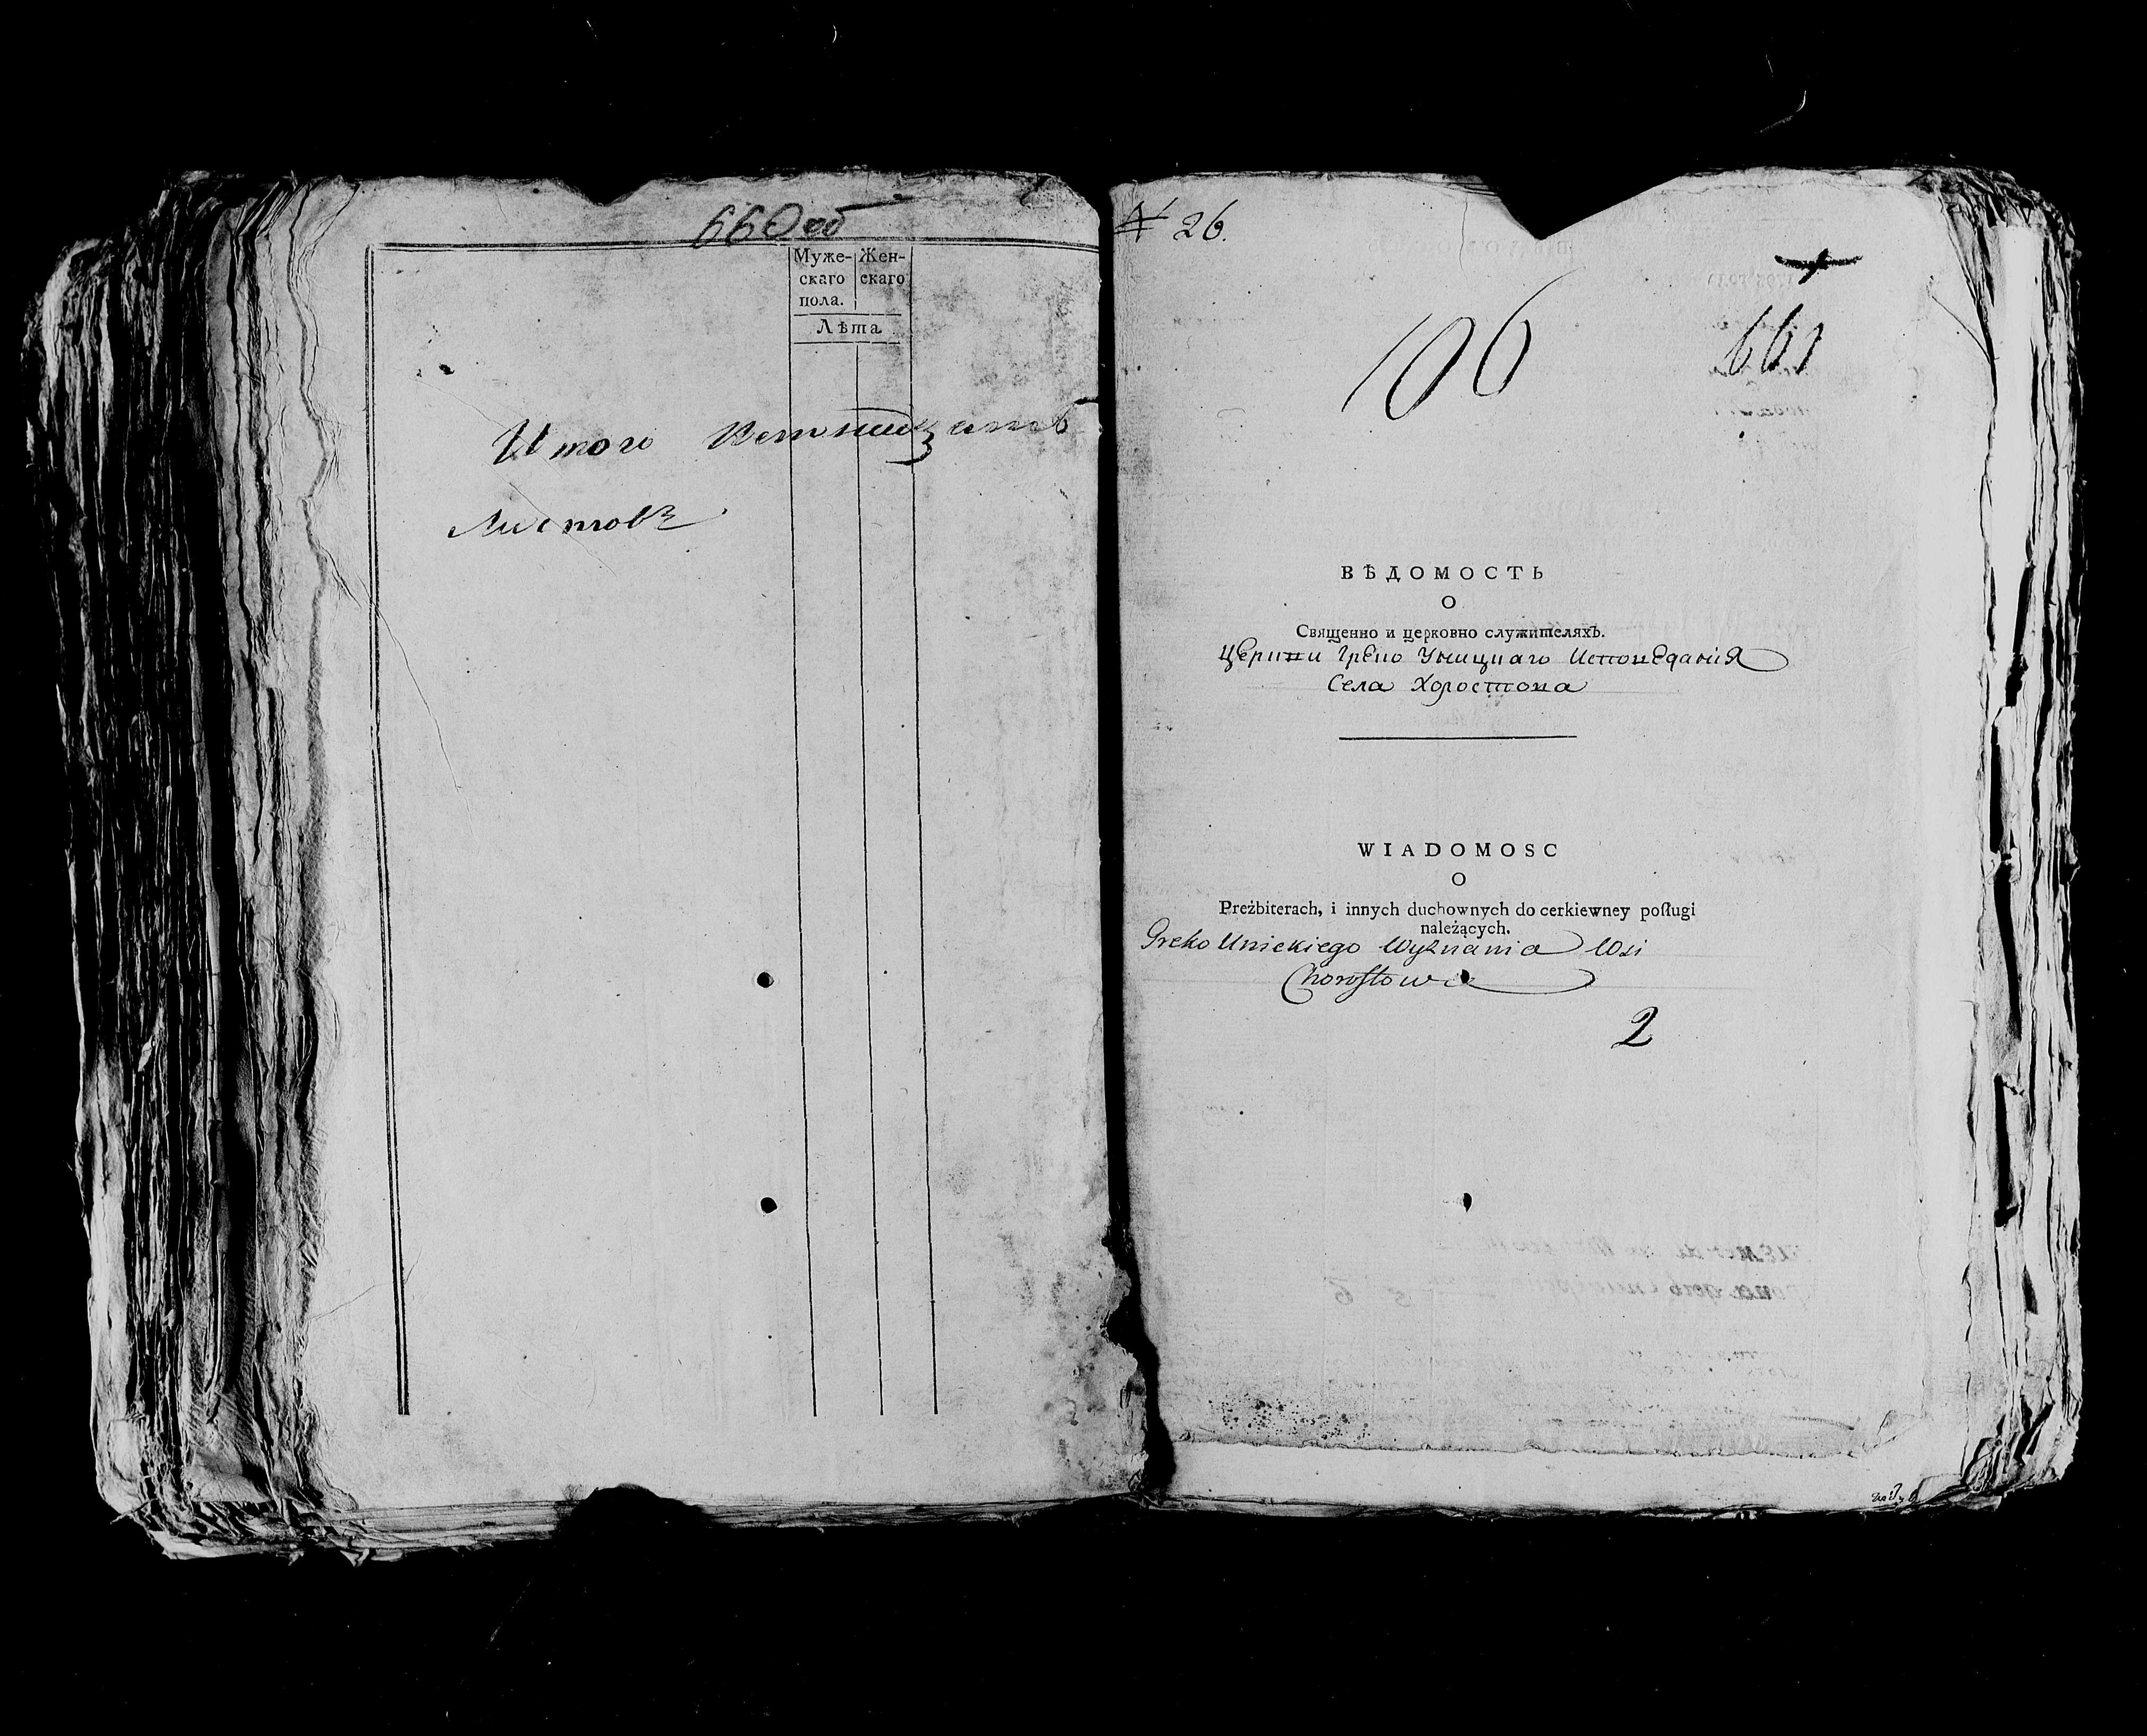 660 об
Муже- Жен-
скаго скаго
пола.
Лѣта
Итого
Листовъ
№ 26.
106
661
ВѢДОМОСТЬ
О
Священно и церковно служителяхЪ.
Церкви Греко Уницкаго Исповеданія
Села Хоростова
WIADOMOSC
O
Preżbiterach, i innych duchownych do cerkiewney poſługi
należących.
Greko Unickiego Wyznania Wsi
Choroſtowa
2